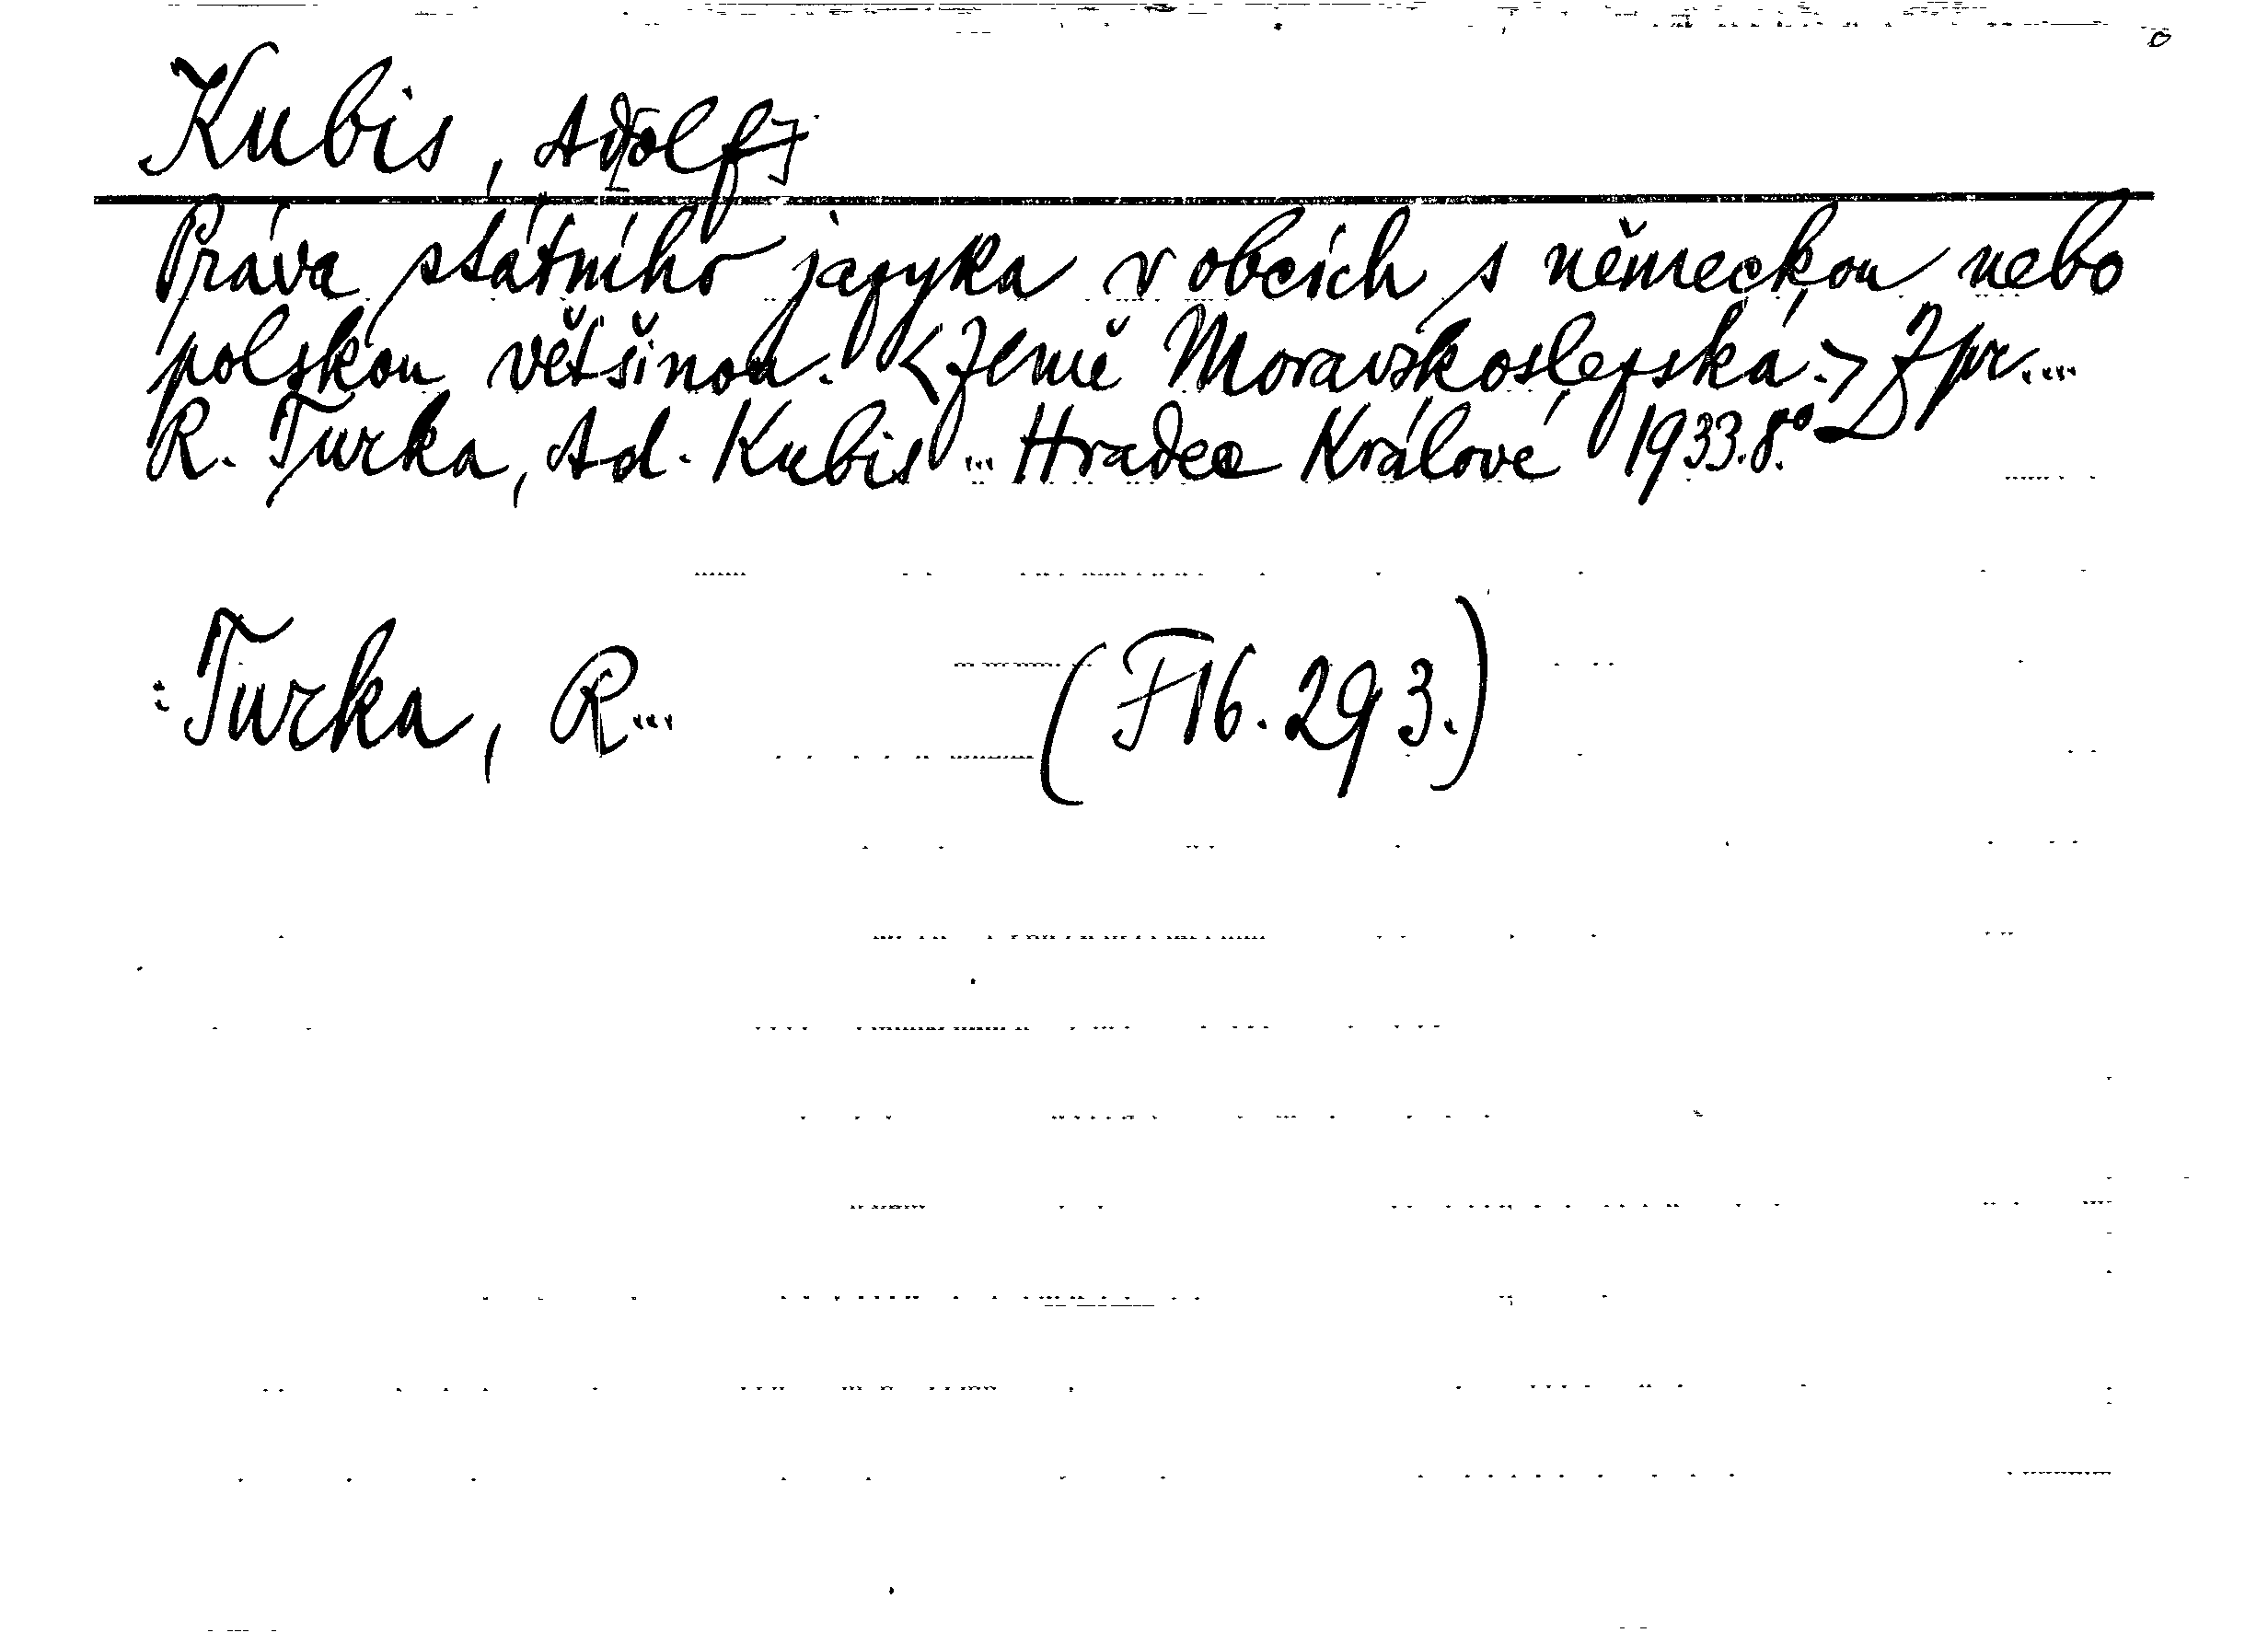 Kubis, Ad[olf]
Práva státního jazyka v obcích s německou nebo
polskou většinou. <Země Moravskoslezská.> Zpr. ...
R. Turka, Ad. Kubis ... Hradec Králové 1933. 8°
: Turka, R... (F 16.293.)